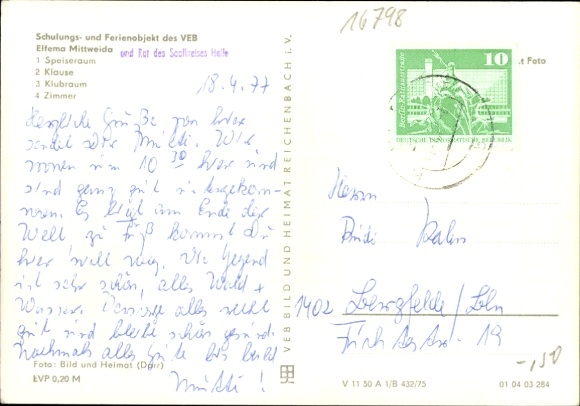 16798
Schulungs- und Ferienobjekt des VEB
Elfema Mittweida
und Rat des Saalkreises Halle
1 Speiseraum
2 Klause
3 Klubraum
4 Zimmer
18.4.77
Herzliche Grüße von hier
sendet Dir Mutti. Wir
waren um 10 30 hier und
sind ganz gut angekom-
men. Es liegt am Ende der
Welt zu Fuß kommst Du
hier weg. Die Gegend
ist sehr schön, alles Wald +
Wasser. alles recht
gut und bleibt schön gesund.
Nochmals alles Gute bis bald
Mutti!
Foto: Bild und Heimat (Dörr)
EVP 0,20 M
VEB BILD UND HEIMAT REICHENBACH i. V.
t Foto
10
Berlin-Rathausstraße
DEUTSCHE DEMOKRATISCHE REPUBLIK
Herrn
Rudi Kahn
1402 Bergfelde / Bln
Str. 19
-,50
V 11 50 A 1/B 432/75
01 04 03 284